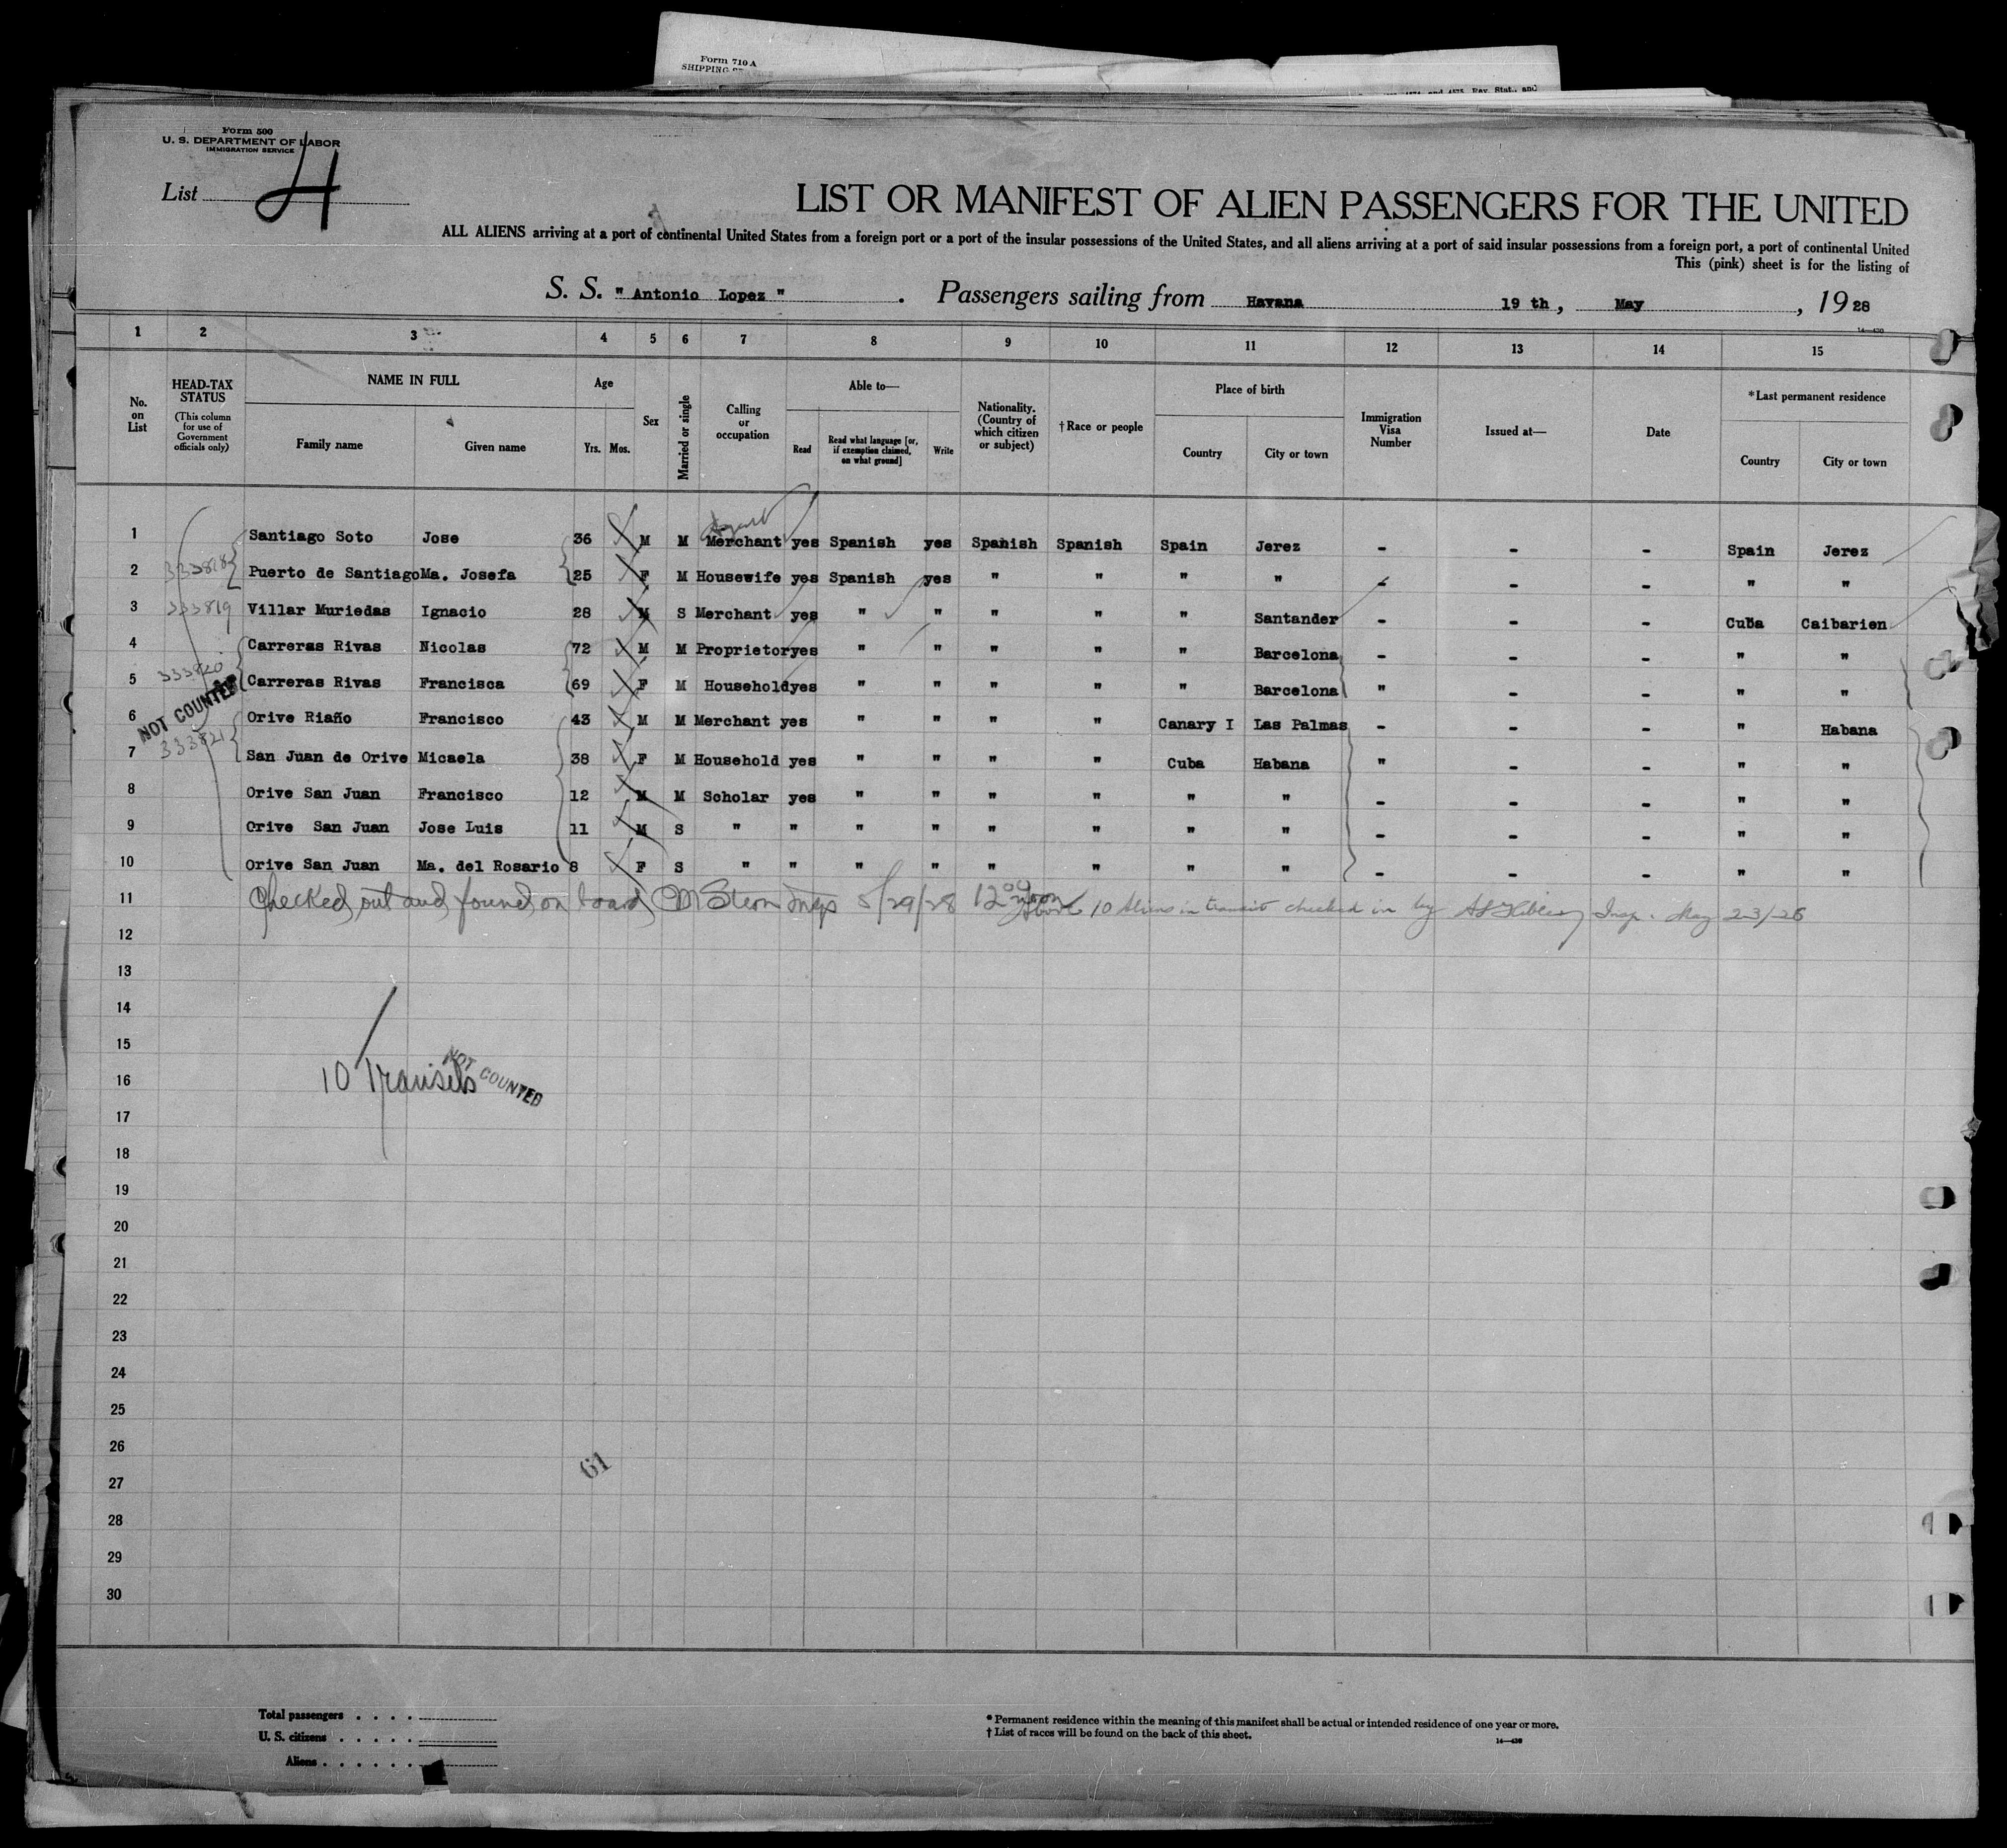 Form 710 A
SHIPPING
4575, Rev. Stat., and
Form 500
U. S. DEPARTMENT OF LABOR
IMMIGRATION SERVICE
List 4
LIST OR MANIFEST OF ALIEN PASSENGERS FOR THE UNITED
ALL ALIENS arriving at a port of continental United States from a foreign port or a port of the insular possessions of the United States, and all aliens arriving at a port of said insular possessions from a foreign port, a port of continental United
This (pink) sheet is for the listing of
S. S. " Antonio Lopez " . Passengers sailing from Havana 19 th, May , 19 28
14—430
1 2 3 4 5 6 7 8 9 10 11 12 13 14 15
No. on List
HEAD-TAX STATUS (This column for use of Government officials only)
NAME IN FULL Family name Given name
Age Yrs. Mos.
Sex
Married or single
Calling or occupation
Able to— Read Read what language [or, if exemption claimed, on what ground] Write
Nationality. (Country of which citizen or subject)
†Race or people
Place of birth Country City or town
Immigration Visa Number
Issued at—
Date
*Last permanent residence Country City or town
Agent
1 Santiago Soto Jose 36 M M Merchant yes Spanish yes Spanish Spanish Spain Jerez - - - Spain Jerez
2 333818 Puerto de Santiago Ma. Josefa 25 F M Housewife yes Spanish yes " " " " - - - " "
3 333819 Villar Muriedas Ignacio 28 M S Merchant yes " " " " " Santander - - - Cuba Caibarien
4 Carreras Rivas Nicolas 72 M M Proprietor yes " " " " " Barcelona - - - " "
5 333820 Carreras Rivas Francisca 69 F M Household yes " " " " " Barcelona " - - " "
NOT COUNTED
6 Orive Riaño Francisco 43 M M Merchant yes " " " " Canary I Las Palmas - - - " Habana
7 333821 San Juan de Orive Micaela 38 F M Household yes " " " " Cuba Habana " - - " "
8 Orive San Juan Francisco 12 M M Scholar yes " " " " " " - - - " "
9 Orive San Juan Jose Luis 11 M S " " " " " " " " - - - " "
10 Orive San Juan Ma. del Rosario 8 F S " " " " " " " " - - - " "
11 Checked out and found on board CM Stern Insp 5/29/28 12 00 noon
above 10 Aliens in transit checked in by Insp. May 23/28
12
13
14
15
16 10 Transits NOT COUNTED
17
18
19
20
21
22
23
24
25
26
61
27
28
29
30
Total passengers . . . .
U. S. citizens . . . . .
Aliens . . . . . .
* Permanent residence within the meaning of this manifest shall be actual or intended residence of one year or more.
† List of races will be found on the back of this sheet.
14—430